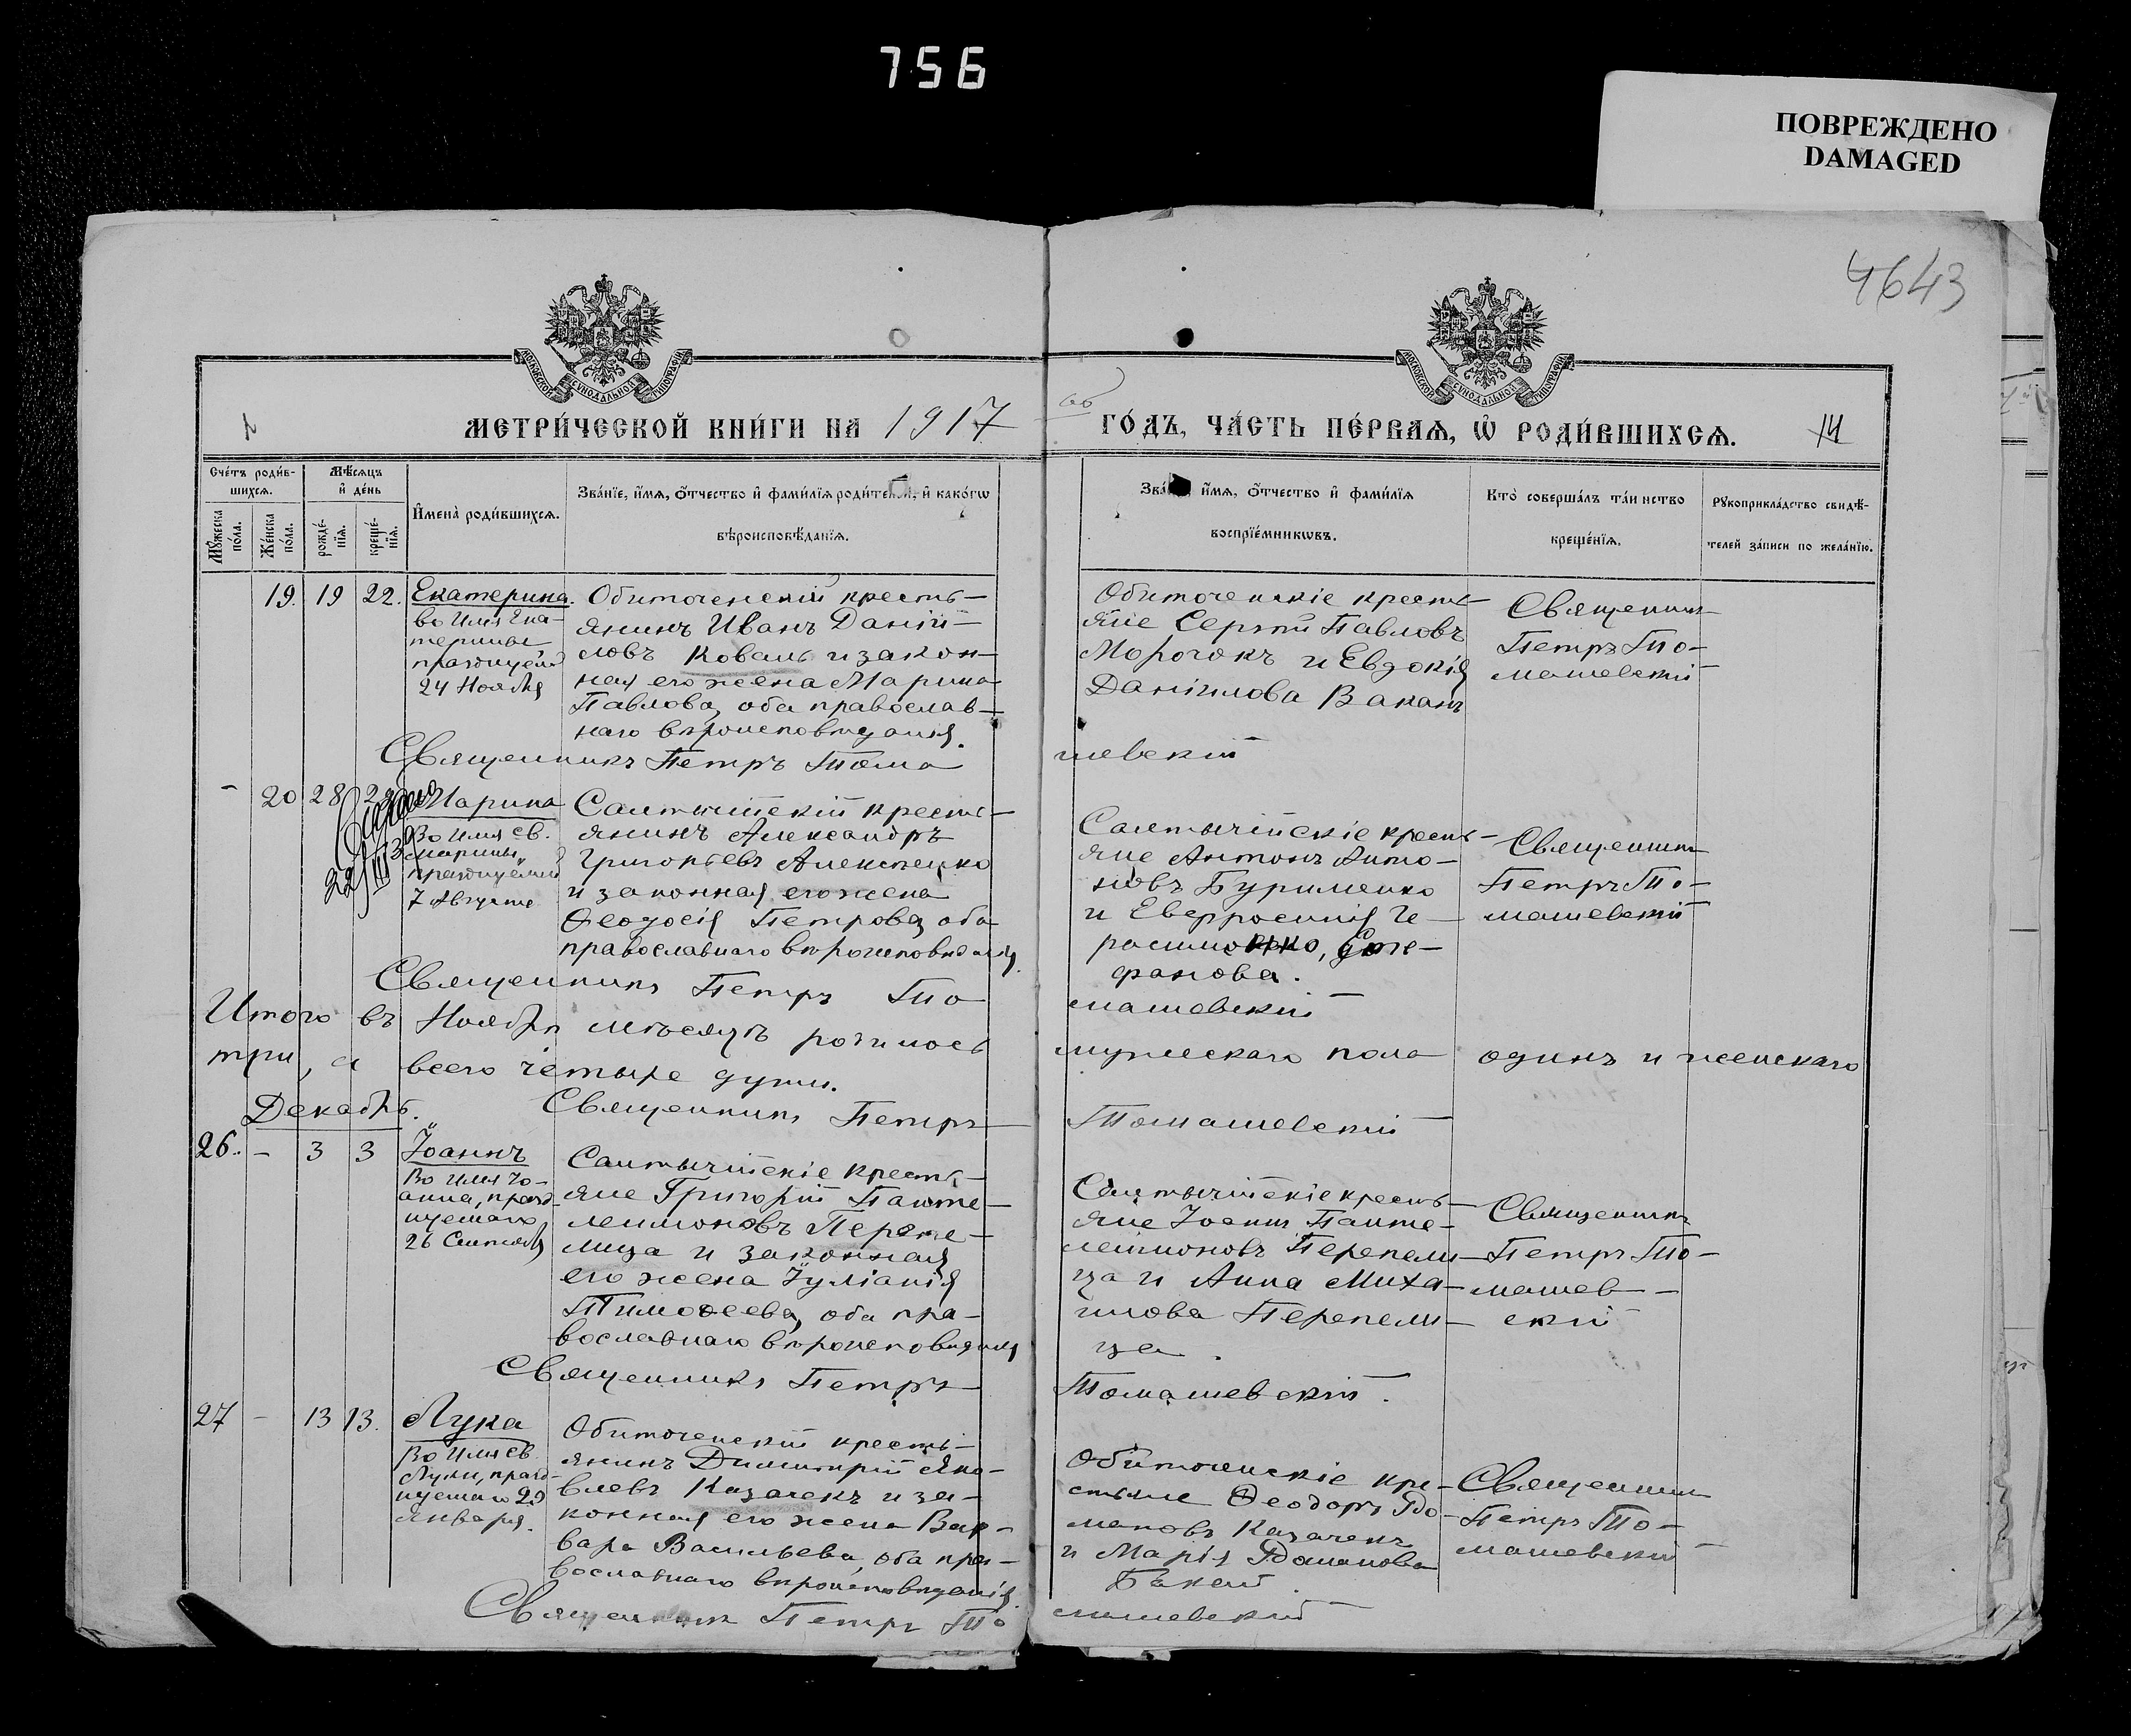 756
ПОВРЕЖДЕНО
DAMAGED
4643
МОСКОВСКОЙ СѴНОДАЛЬНОЙ ТИПОГРАФІИ
МОСКОВСКОЙ СѴНОДАЛЬНОЙ ТИПОГРАФІИ
МЕТРИ́ЧЕСКОЙ КНИ́ГИ НА 1917
ГО́ДЪ, ЧА́СТЬ ПЕ́РВАЯ, Ѡ РОДИ́ВШИХСЯ. 14
Сче́тъ роди́в-
шихся.
Мꙋ́жеска
по́ла.
Же́нска
по́ла.
Мѣ́сяцъ
и҆ де́нь
рожде́-
нїя.
креще́-
нїя.
И҆мена̀ роди́вшихся.
Зва́нїе, и҆́мя, ѻ҆́тчество и҆ фами́лїя роди́телей, и҆ како́гѡ
вѣроисповѣ́данїя.
Зва́нїе, и҆́мя, ѻ҆́тчество и҆ фами́лїя
воспрїе́мникѡвъ.
Кто̀ соверша́лъ та́инство
креще́нїя.
Рꙋкоприкла́дство свидѣ́-
телей за́писи по жела́нїю.
19. 19 22.
Екатерина.
во имя Ека-
терины
празднуем.
24 Ноября
Обиточенскій кресть-
янинъ Иванъ Даніи-
ловъ Коваль и закон-
ная его жена Марина
Павлова, оба православ-
наго вѣроисповѣданія.
Обиточенскіе кресть-
яне Сергѣй Павловъ
Морогокъ и Евдокія
Даніилова Вакан
Священникъ
Петръ То-
машевскій
Священникъ Петръ Тома
шевскій
- 20 28 29
22/III 39
Марина
Во имя св.
Марины,
празднуемый
7 Августа
Салтычійскій кресть-
янинъ Александръ
Григорьевъ Алексеенко
и законная его жена
Ѳеодосія Петрова, оба
православнаго вѣроисповѣданія.
Салтычійскіе кресть-
яне Антонъ Анто-
новъ Буpименко
и Евфросинія Ге-
расименко, Сте-
фанова.
Священникъ
Петръ То-
машевскій
Священникъ Петръ То
машевскій
Итого въ Ноябрѣ мѣсяцѣ родилось
мужескаго пола одинъ и женскаго
три, а всего четыре души.
Священникъ Петръ
Томашевскій
Декабрь.
26. - 3 3
Іоаннъ
Во имя Іо-
анна, празд-
нуемаго
26 Сентября
Салтычійскіе кресть-
яне Григорій Панте-
леимоновъ Перепе-
лица и законная
его жена Іуліанія
Тимоѳеева, оба пра-
вославнаго вѣроисповѣданія
Салтычійскіе кресть-
яне Іоаннъ Панте-
леимоновъ Перепели-
ца и Анна Миха-
илова Перепели-
ца.
Священникъ
Петръ То-
машев-
скій
Священникъ Петръ
Томашевскій.
27 - 13 13.
Лука
Во имя св.
Луки, празд-
нуемаго 29
Января.
Обиточенскій кресть-
янинъ Димитрій Яко-
влевъ Казачекъ и за-
конная его жена Вар-
вара Васильева, оба пра-
вославнаго вѣроисповѣданія.
Обиточенскіе кре-
стьяне Ѳеодоръ Ро-
мановъ Казачекъ
и Марія Романова
Бакай.
Священникъ
Петръ То-
машевскій
Священник Петръ То
машевскій